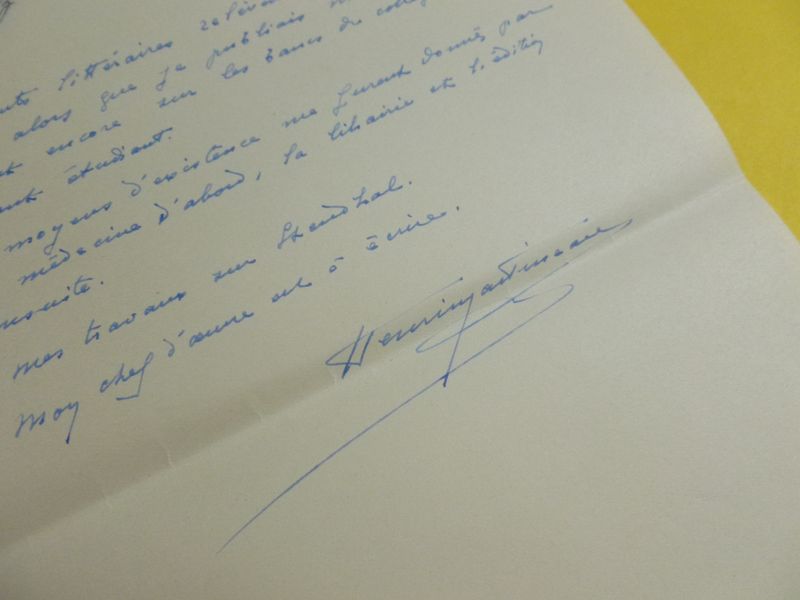 littéraires
alors que je publiais
encore sur les bancs du
étudiant.
moyens d'existence me furent donnés par
médecine d'abord, la librairie et l'édition
ensuite.
mes travaux sur Stendhal.
Mon chef d'œuvre est à écrire.
Henri Martineau